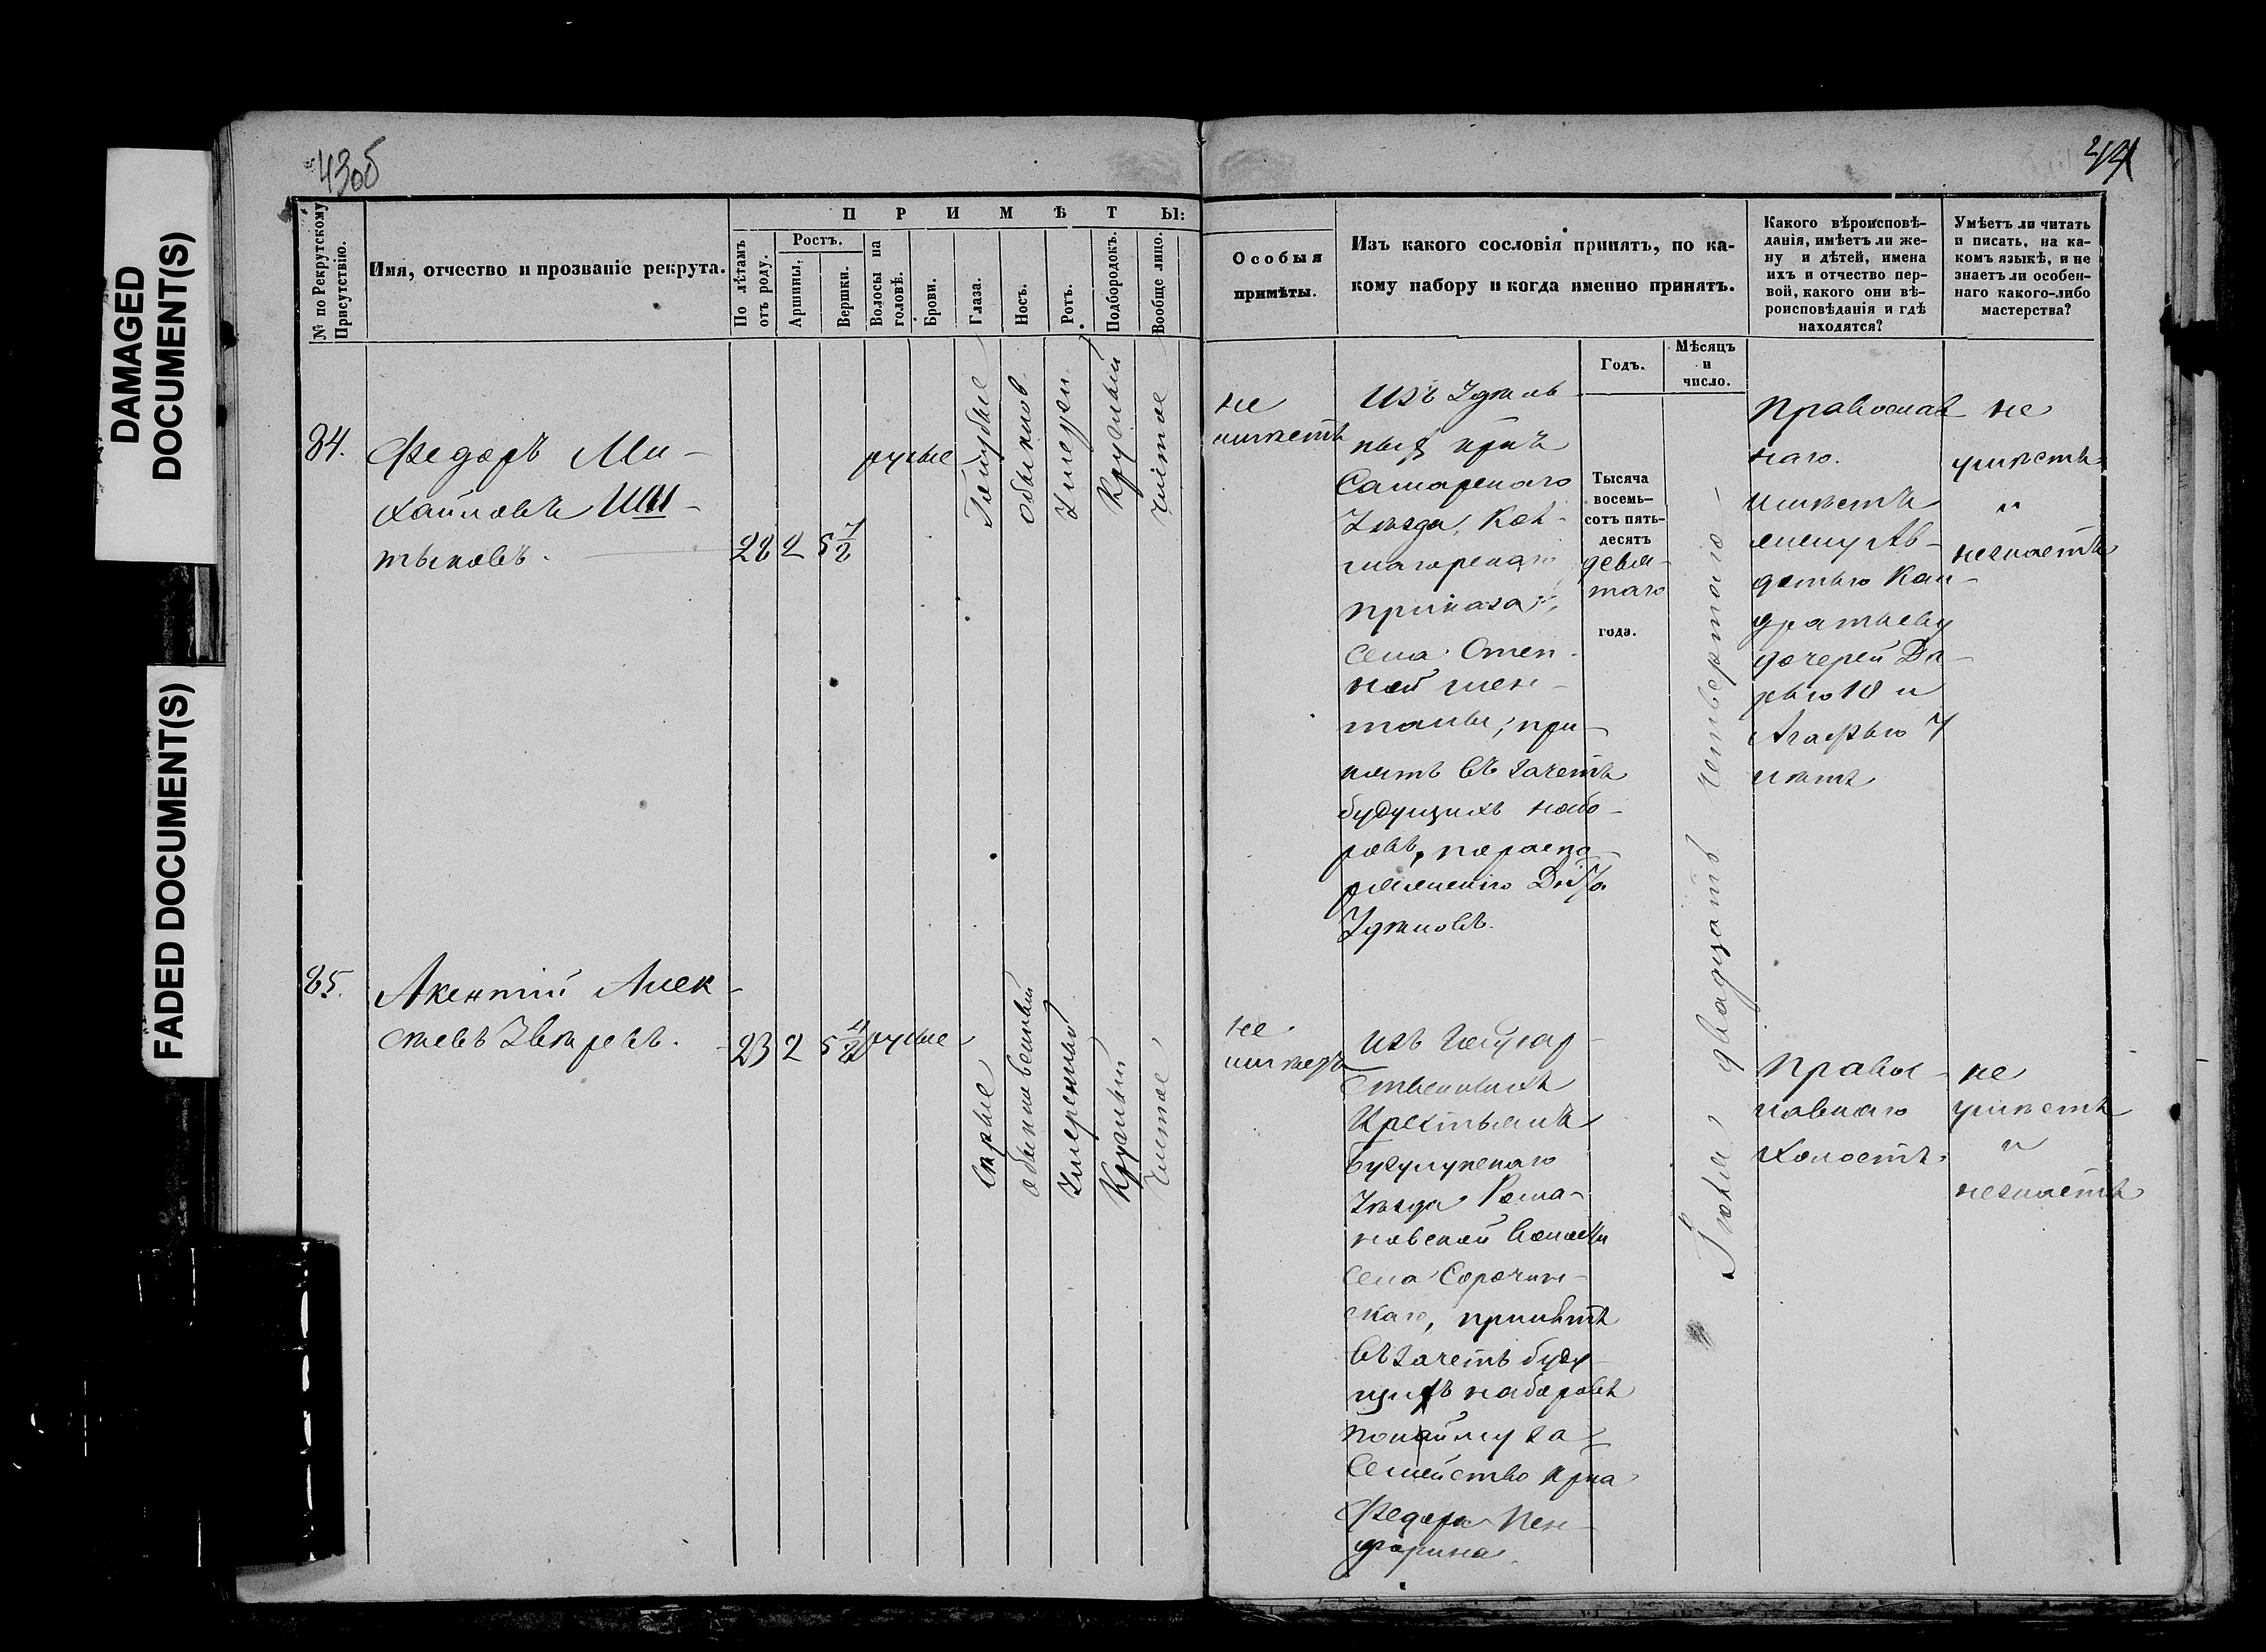 DAMAGED
DOCUMENT(S)
FADED DOCUMENT(S)
43об
44
№ по Рекрутскому
Присутствію.
Имя, отчество и прозваніе рекрута.
П Р И М Ѣ Т Ы:
По лѣтамъ
отъ роду.
Ростъ.
Аршины.
Вершки.
Волосы на
головѣ.
Брови.
Глаза.
Носъ.
Ротъ.
Подбородокъ.
Вообще лицо.
Особыя
примѣты.
Изъ какого сословія принятъ, по ка-
кому набору и когда именно принятъ.
Годъ.
Мѣсяцъ
и
число.
Какого вѣроисповѣ-
данія, имѣетъ ли же-
ну и дѣтей, имена
ихъ и отчество пер-
вой, какого они вѣ-
роисповѣданія и гдѣ
находятся?
Умѣетъ ли читать
и писать, на ка-
комъ языкѣ, и не
знаетъ ли особен-
наго какого-либо
мастерства?
84.
Федоръ Ми-
хайловъ
тыковъ.
22 2 5 1/2
русые
Голубые
обыкнов.
Умерен.
Круглый
чистое
не
имѣетъ
Изъ Удѣль
ныхъ кр-нъ
Самарскаго
Уѣзда,
приказа,
села Степ-
ной Шен-
талы, при-
нятъ въ зачетъ
будущихъ набо-
ровъ, по распо-
ряженію Д-та
Удѣловъ.
Тысяча
восемь-
сотъ пять-
десятъ
девя-
таго
года.
Іюля двадцать четвертаго
Православ
наго.
имѣетъ
жену Ав-
дотью Кон-
дратьеву
дочерей Да-
рью 10 и
Агафью 7
лѣтъ
не
умѣетъ
и
незнаетъ
85.
Акентій Алек-
сѣевъ Звѣревъ.
23 2 5
русые
Сѣрые
обыкновенный
Умеренный
Круглый
Чистое
не
имѣетъ
изъ Государ-
ственныхъ
Крестьянъ
Бузулукскаго
Уѣзда Рома-
новской Волости
села Сорочин-
скаго, принятъ
въ зачетъ буду-
щихъ наборовъ
по найму за
Семейство кр-на
Федора Пен-
Правос-
лавнаго
Холостъ.
не
умѣетъ
и
незнаетъ